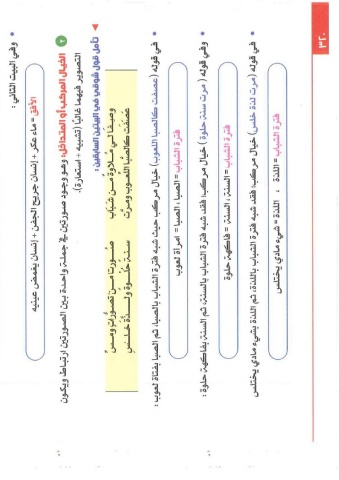 وفي البيت الثاني :
الأفق = ماء عكر + إنسان جريح الجفن + إنسان يغمض عينيه
٢ الخيال المركب أو المتداخل: وهو وجود صورتين في جملة واحدة بين الصورتين ارتباط ويكون
التصوير فيهما غالبًا (تشبيه + استعارة).
تأمل قول شوقي في البيتين السابقين :
وصفا لي ملاوة من شباب صورت من تصورات ومس
عصفت كالصبا اللعوب ومرت سنة حلوة ولذة خلس
في قوله (عصفت كالصبا اللعوب) خيال مركب حيث شبه فترة الشباب بالصبا، ثم الصبا بفتاة لعوب :
فترة الشباب = الصبا ، الصبا = امرأة لعوب
وفي قوله (مرت سنة حلوة) خيال مركب؛ فقد شبه فترة الشباب بالسنة، ثم السنة بفاكهة حلوة :
فترة الشباب = السنة ، السنة = فاكهة حلوة
في قوله (مرت لذة خلس) خيال مركب؛ فقد شبه فترة الشباب باللذة، ثم اللذة بشيء مادي يختلس
فترة الشباب = اللذة ، اللذة = شيء مادي يختلس
٣٢٠